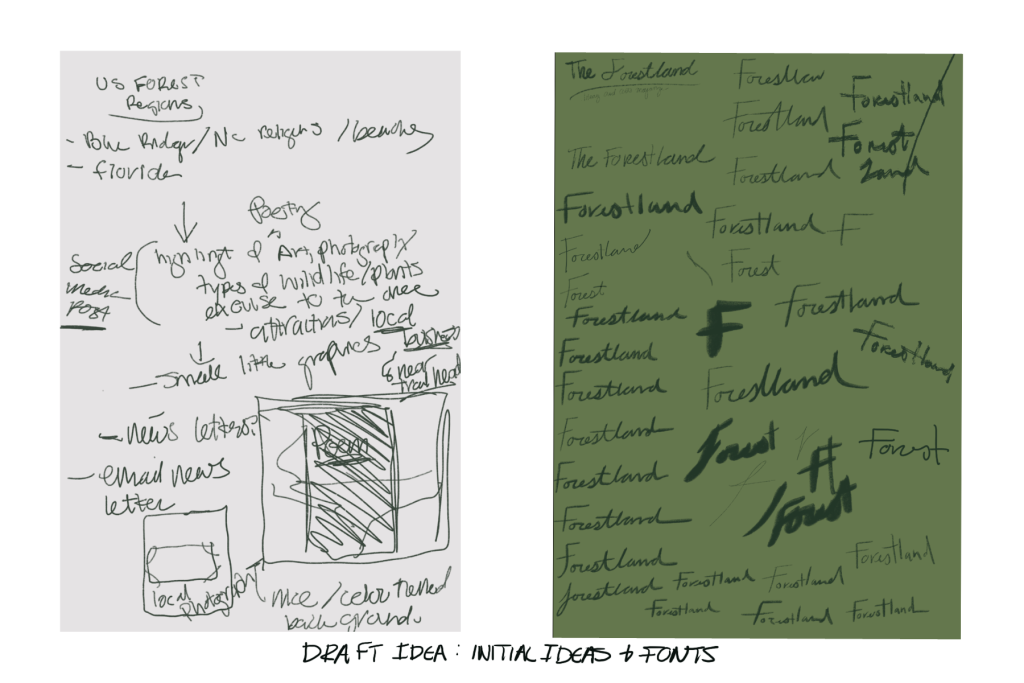 US FOREST
Regions
- Blue Ridge / NC religens / beaches
- florida
Poetry
highlingt of Art, photography/
types of wildlife/plants
- attractions/ local
business
& near
trail head
Social
media
POST
- Small little graphics
- news letters?
- email news
letter
Poem
local
photography
nice / color themed
back ground.
The Forestland
Forestland
Forestland
Forestland
Forest
Land
The Forestland
Forestland
Forestland
Forestland
F
Forestland
Forest
Forest
Forestland
F
Forestland
Forestland
Forestland
Forestland
Forestland
Forestland
Forest
Forest
Forestland
F
Forest
Forestland
Forestland
Forestland
Forestland
Forestland
Forestland
Forestland
Forestland
Forestland
DRAFT IDEA : INITIAL IDEAS & FONTS